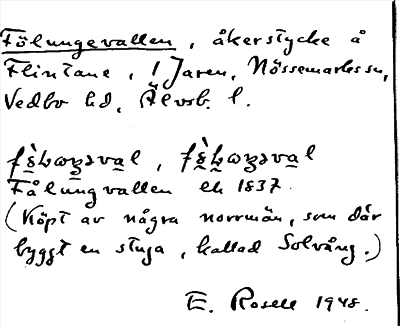 Fölungevallen, åkerstycke å
Flintane, i Jaren, Nössemarks sn,
Vedbo hd, Älvsb. l.
Fålungvallen ek 1837.
(Köpt av några norrmän, som där
byggt en stuga, kallad Solvång.)
E. Rosell 1948.